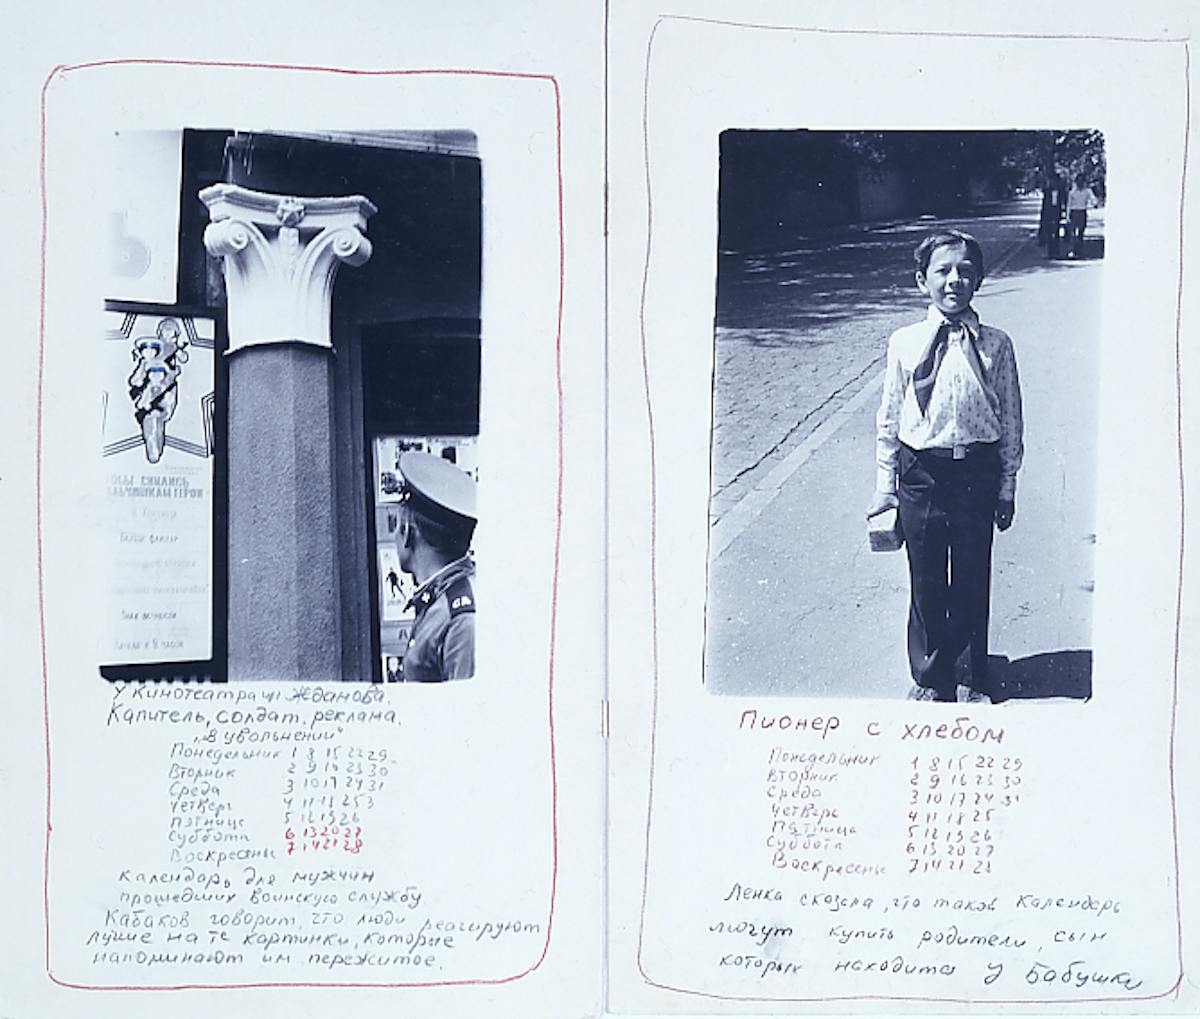 СНИЛИСЬ
ЗНАК ВЕЧНОСТИ
НАЧАЛО В 9 ЧАСОВ
СА
У Кинотеатра Жданова.
Капитель, солдат, реклама.
„В увольнении"
Понедельник 1 8 15 22 29
Вторник 2 9 16 23 30
Среда 3 10 17 24 31
Четверг 4 11 18 25
Пятница 5 12 19 26
Суббота 6 13 20 27
Воскресенье 7 14 21 28
Календарь для мужчин
прошедших воинскую службу
Кабаков говорит, что люди реагируют
лучше на те картинки, которые
напоминают им пережитое.
Пионер с хлебом
Понедельник 1 8 15 22 29
Вторник 2 9 16 23 30
Среда 3 10 17 24 31
Четверг 4 11 18 25
Пятница 5 12 19 26
Суббота 6 13 20 27
Воскресенье 7 14 21 28
Ленка сказала, что такой Календарь
могут купить родители, сын
которых находится у Бабушки